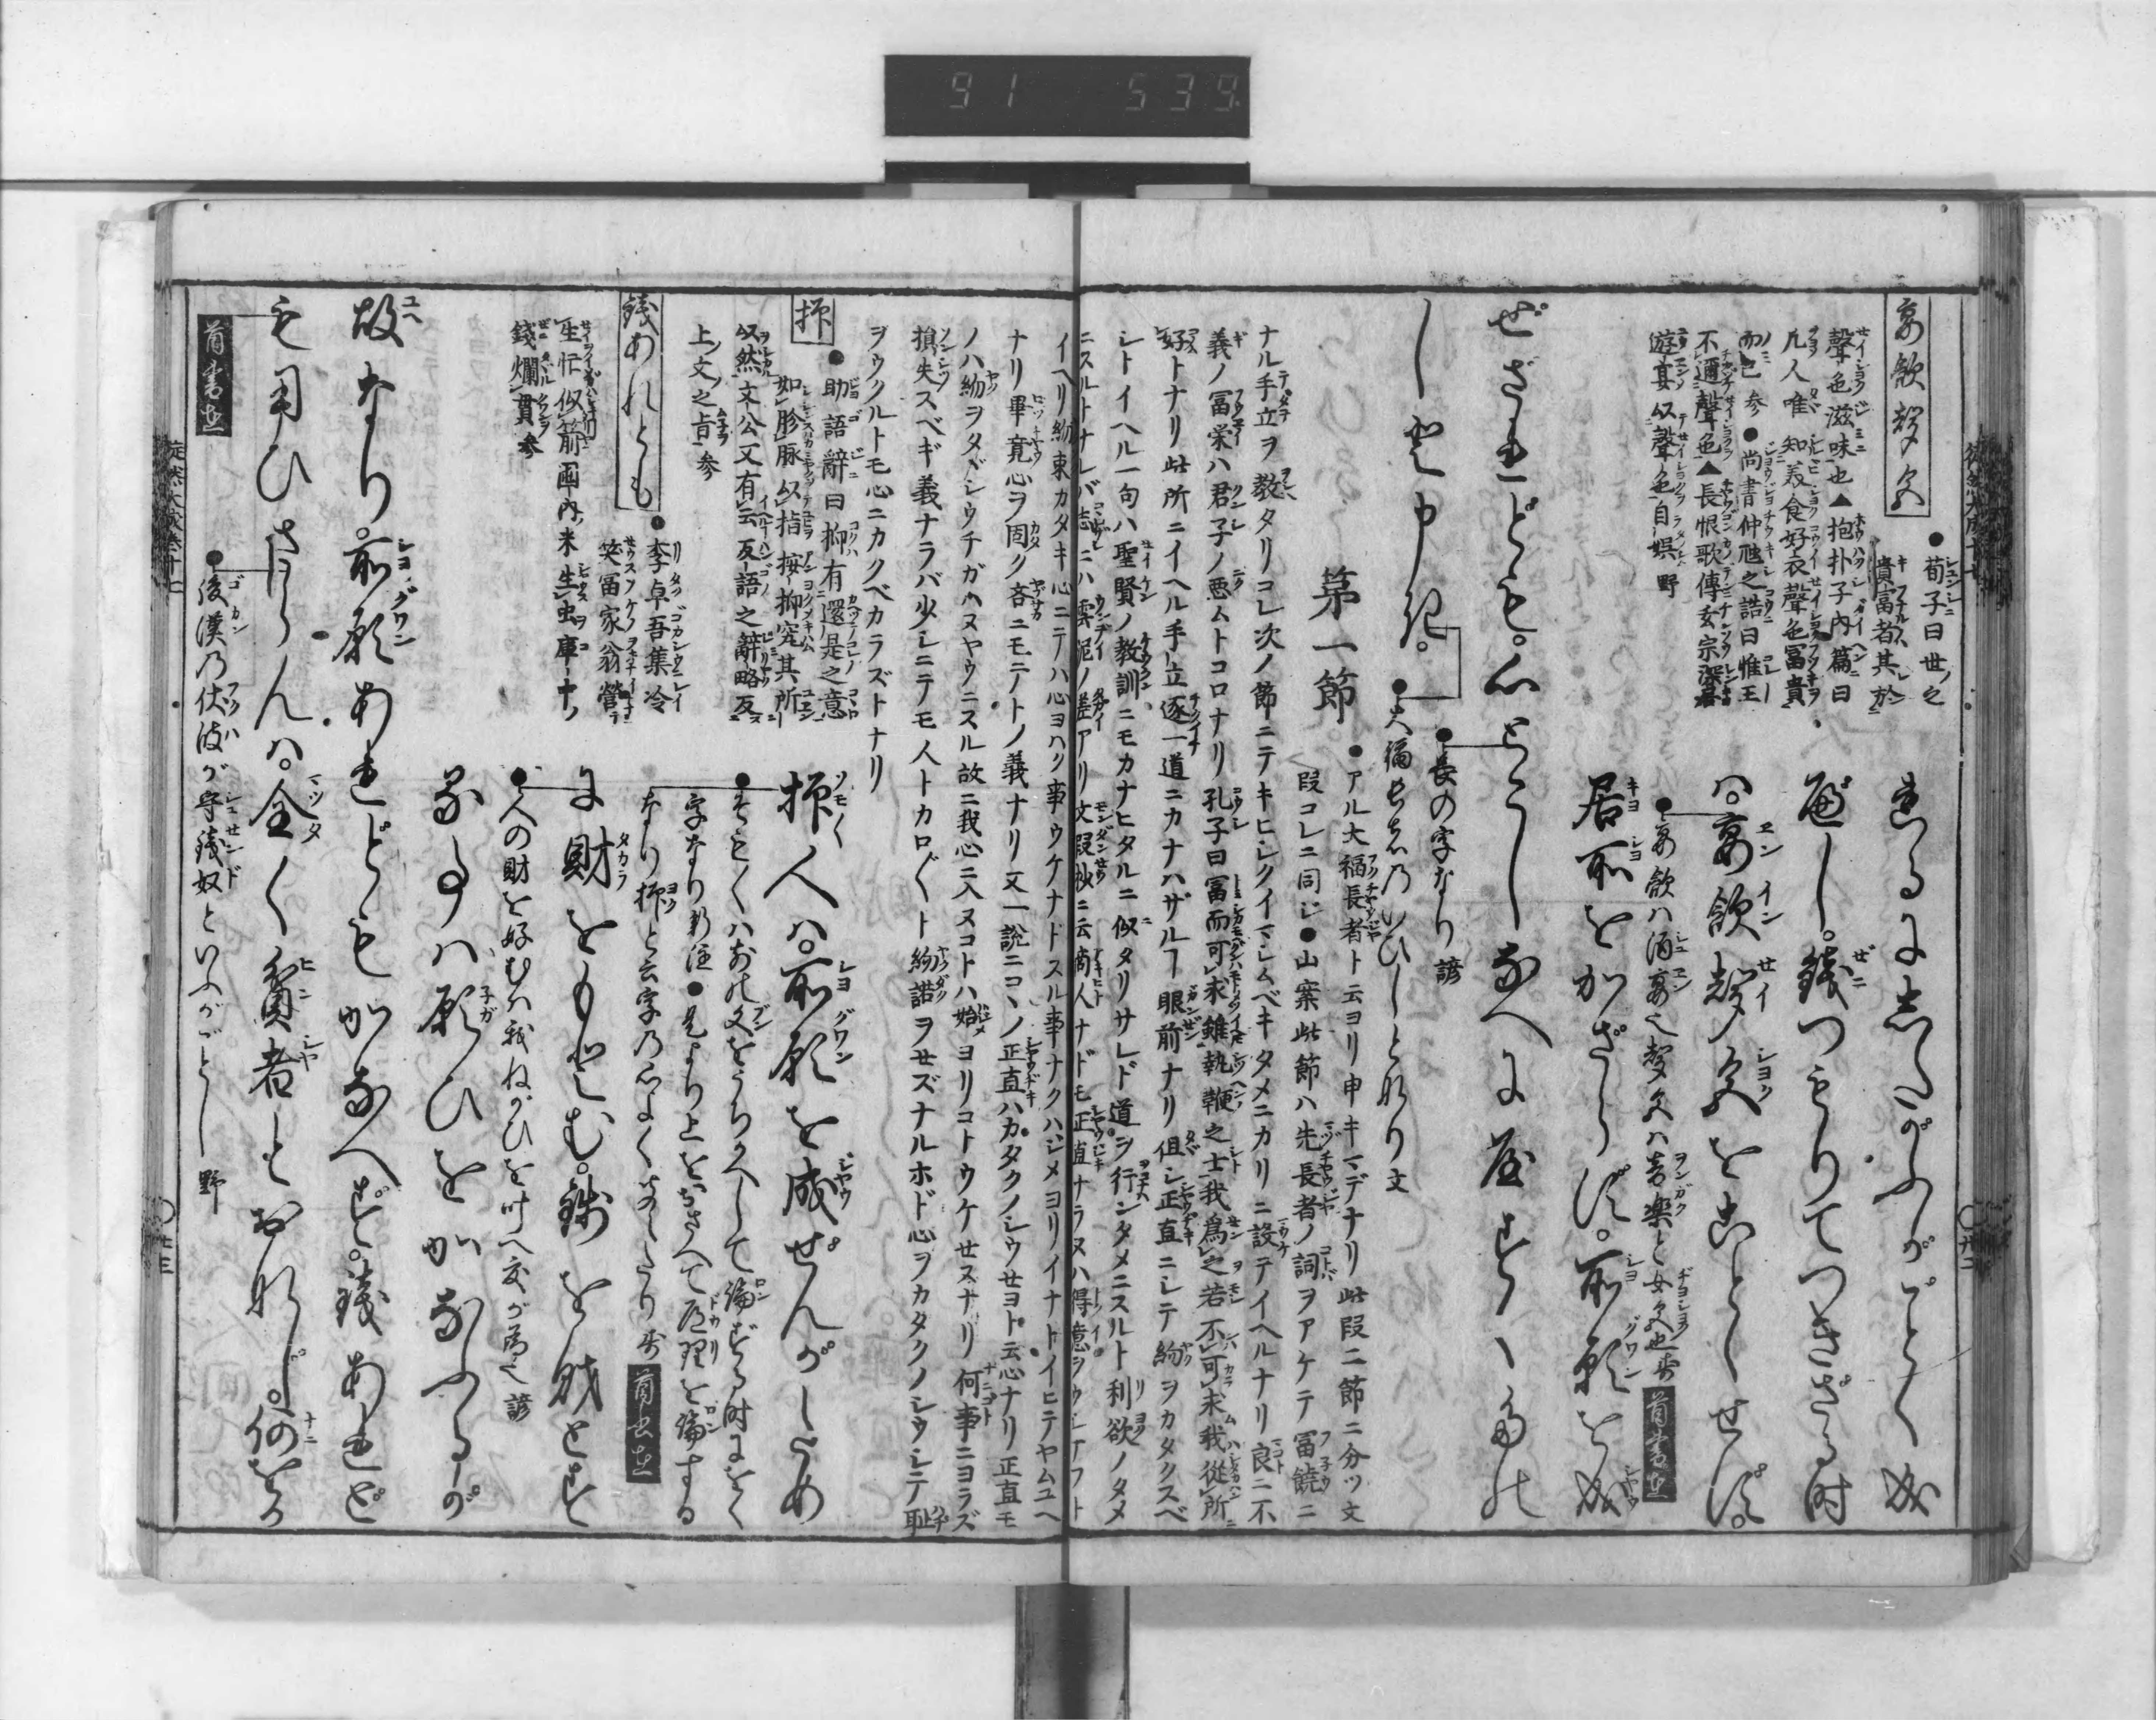 91 539
宴飲聲色
●荀子曰世ノ之
貴冨者其於
聲色滋味也▲抱朴子内篇曰
凡人唯知美食好衣聲色冨貴
而已参●尚書仲虺之誥曰惟王
不邇聲色▲長恨歌傳玄宗深居
遊宴以聲色自娯 野
きるにしたがふがごとく成
べし。銭つもりてつきざる時
ハ。宴飲聲色をことゝせず。
●宴飲ハ酒宴也聲色ハ音楽と女色也 首書在
居所をかざらず。所願を成
ぜざれども。心とこしなへに安くたのし
と申き。
●長の字なり 諺
●大福長者のいひしとなり 文
第一節
●アル大福長者ト云ヨリ申キマデナリ此段二節ニ分ツ文
段コレニ同ジ●山案此節ハ先長者ノ詞ヲアケテ冨饒ニ
ナル手立ヲ教タリコレ次ノ節ニテキヒシクイマシムベキタメニカリニ設テイヘルナリ良ニ不
義ノ冨栄ハ君子ノ悪ムトコロナリ孔子曰冨而可求雖執鞭之士我為之若不可求我従所
好トナリ此所ニイヘル手立逐一道ニカナハザルヿ眼前ナリ但シ正直ニシテ約ヲカタクスベ
シトイヘル一句ハ聖賢ノ教訓ニモカナヒタルニ似タリサレド道ヲ行ンタメニスルト利欲ノタメ
ニスルトナレバ志ニハ雲泥ノ差アリ文段抄ニ云商人ナドモ正直ナラヌハ得意ヲウシナフト
イヘリ約束カタキ心ニテハ心ヨハク事ウケナドスル事ナクハジメヨリイナトイヒテヤムユヘ
ナリ畢竟心ヲ固ク吝ニモテトノ義ナリ又一説ニコヽノ正直ハカタクノシウセヨト云心ナリ正直モ
ノハ約ヲタガシウチガハヌヤウニスル故ニ我心ニ入ヌコトハ始ヨリコトウケセスナリ何事ニヨラズ
損失スベギ義ナラバ少シニテモ人トカロ〴〵ト約諾ヲセズナルホド心ヲカタクノシウシニテ耻
ヲウクルトモ心ニカクベカラズトナリ
抑
●助語辭曰抑有還是之意
如胗脉以指按抑究其所
以然文公又有云反語之辭略反
上文之旨 参
抑人ハ。所願を成ぜんがため
●そも〳〵ハ前の文をうちかへして論ずる時にをく
字なり新註●是より上をおさへて道理を論する
なり抑と云字乃心よく叶へり 寿 首書在
に財をもとむ。銭を財とする
銭あれども
●李卓吾集冷
笑冨家翁營
生忙似箭囤内米生虫庫中ノ
錢爛貫 参
●人の財を好むハ我ねがひを叶へ度が為也 諺
事ハ願ひをかなふるが
故なり。所願あれどもかなへず。銭あれど
も用ひざらんハ。全く貧者とおなじ。何をか
首書在
●後漢乃伏波が守銭奴といふがごとし 野
徒然大成巻十七